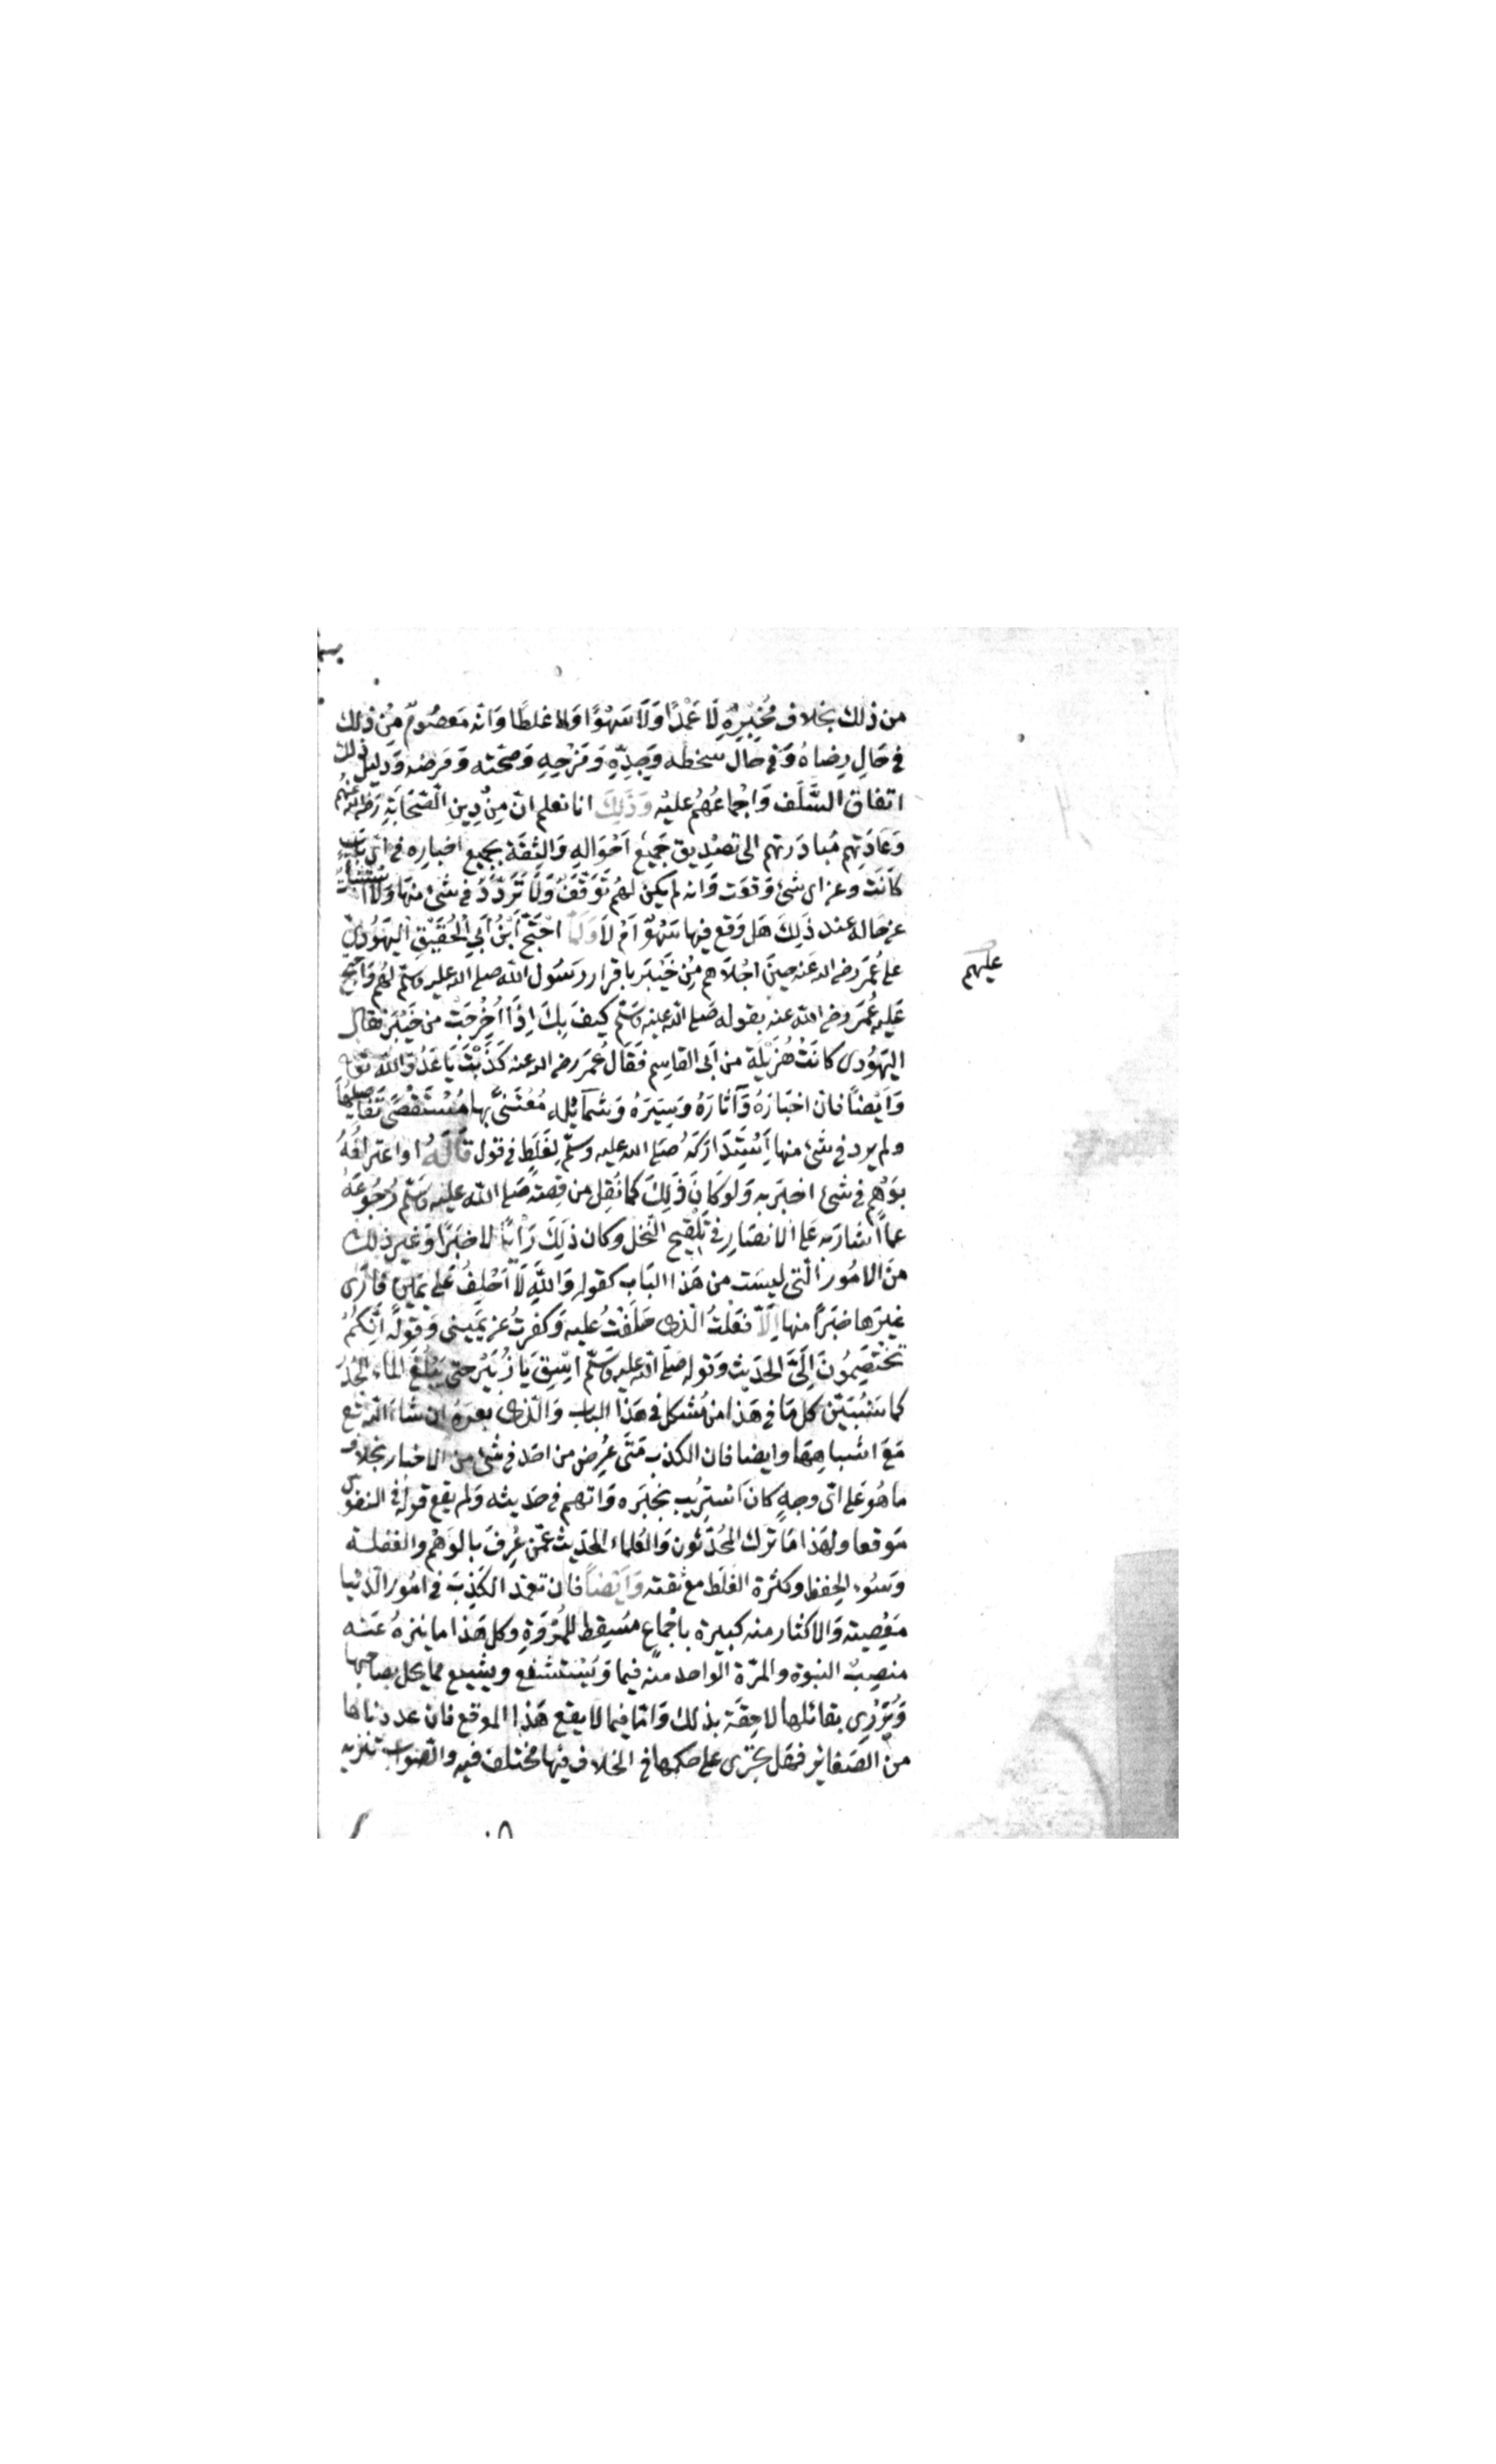 من ذلك بخلاف مُخْبِرِهِ لَا عَمْدًا وَلَا سَهْوًا وَلا غلطًا وَانه مَعصُومٌ مِن ذلك
في حَالِ رِضاهُ وَفي حال سَخطه وَجِدِّهِ وَمَزْحِهِ وَصحّته وَمَرضه وَدَلِيلُ ذلك
اتفاق السَّلَف وَاجْماعُهُم عليْه وَذَلِكَ انا نعلم انّ مِنْ دِينِ الصَّحَابَةِ رَضي الله عنهم
وَعَادَتِهِم مُبادَرتهم الى تصْدِيق جَمِيع اَحْوَالِهِ وَالثِقَة بجميع اخباره في اىّ بَابٍ
كَانَت وعن اى شئ وَقعَت وَانه لم يكن لهُم تَوَقّفٌ وَلَا تَرَدّدٌ في شئ منها وَلَا اسْتثباتٌ
عن حاله عند ذَلِكَ هَل وَقع فيها سَهْوٌ اَمْ لَا وَلَمّا احْتَجّ ابْنُ اَبي الْحُقَيْقِ الْيَهُودِىّ
على عُمَر رضى الله عَنه حِينَ اجْلَاهم مِنْ خَيْبَر باقرار رَسُول الله صلى الله عليه وسلّم لهُم وَاحتجّ
عليهم
عَليه عُمَر رضى الله عنه بقوله صَلى الله عليه وَسَلّم كيفَ بِكَ اِذَا اُخْرِجْتَ من خَيْبَر فقال
اليَهُودى كَانَتْ هُزَيْلَة من اَبى القَاسِم فَقَالَ عُمَر رضى الله عنه كَذَبْتَ يَا عَدُوّ الله
وَاَيْضًا فانّ اخبَارَهُ وَآثارَهُ وَسِيَرَهُ وَشَمآئِلَه مُعْتَنىً بها مُسْتَقْصًى تفَاصِيلُها
ولم يرد في شَئ منها اسْتِدْرَاكُه صَلى الله عليه وَسلّم لِغَلَطٍ في قول قَالَهُ اواعترافُهُ
بِوَهْمٍ في شئ اخبَر به وَلَو كَانَ ذَلِكَ لَنُقِلَ كما نُقِل من قِصته صَلى الله عليه وَسَلّم رُجُوعُهُ
عمّا اشارَ به عَلى الانصَارِ في تَلْقِيح النّخل وكان ذلِكَ رَأيًا لا خبَرًا وَغير ذلك
مِنَ الامُور الّتى ليسَت من هَذا البَاب كقوله وَاللهِ لَا اَحْلِفُ عَلى يَمينٍ فاَرَى
غيرَها خيَرًا منها اِلّا فعَلْتُ الّذى حَلَفْتُ عليه وَكفّرْتُ عن يَمِينى وَقولُه اَنّكُمْ
تخْتَصِمُونَ اِلَىَّ الحَديث وَقوله صَلى الله عليه وَسَلّم اسْقِ يَا زُبَيْر حَتى يَبْلُغَ الماء الجَدْر
كما سَنُبَيّن كل مَا في هَذا من مُشكل في هَذا الباب وَالّذى بعدَهُ ان شاءَ الله تع
مَعَ اشباهِهَا وايضا فان الكذب مَتَى عُرِض من احَد في شَئ من الاخبار بخلاف
ما هُوَ عَلى اىّ وجهٍ كانَ اسْتُرِيبَ بخَبَره وَاتّهِم في حَديثه وَلم يقع قولُه في النفوس
مَوقعا ولهَذا مَا ترَك المُحَدّثون وَالعُلماء الحَديث عمّن عُرِفَ بالوَهْم والغفلة
وَسُوءِ الحِفظ وكثرة الغَلَط مع ثقته وَاَيْضًا فان تعمّد الكَذِبَ في امُور الدّنيا
مَعْصِية وَالاكثار منه كبيرة باجْماعٍ مُسْقِط لِلمُرُوَّةِ وكل هَذا ما يُنزَّهُ عَنه
منصِبُ النبوة والمَرّة الواحد منه فيما وَيُسْتَشْنع ويشيع مما يخل بصاحبها
وَيُزْرِى بقائلها لاحِقة بذلك وَامّا فيما لا يقع هَذا الموقع فان عددناها
من الصّغائر فهَل تجْرى على حكمها في الخلاف فيها مختلف فيه والصّواب تنزيه